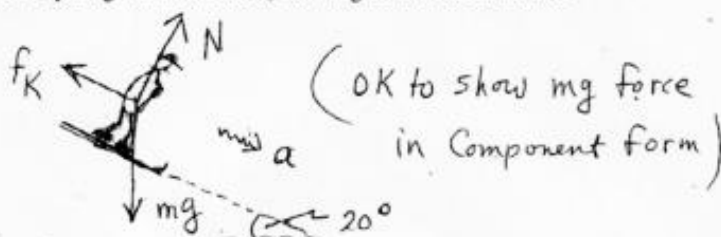 N
f_K
(OK to show mg force
in Component form)
a
mg
20°